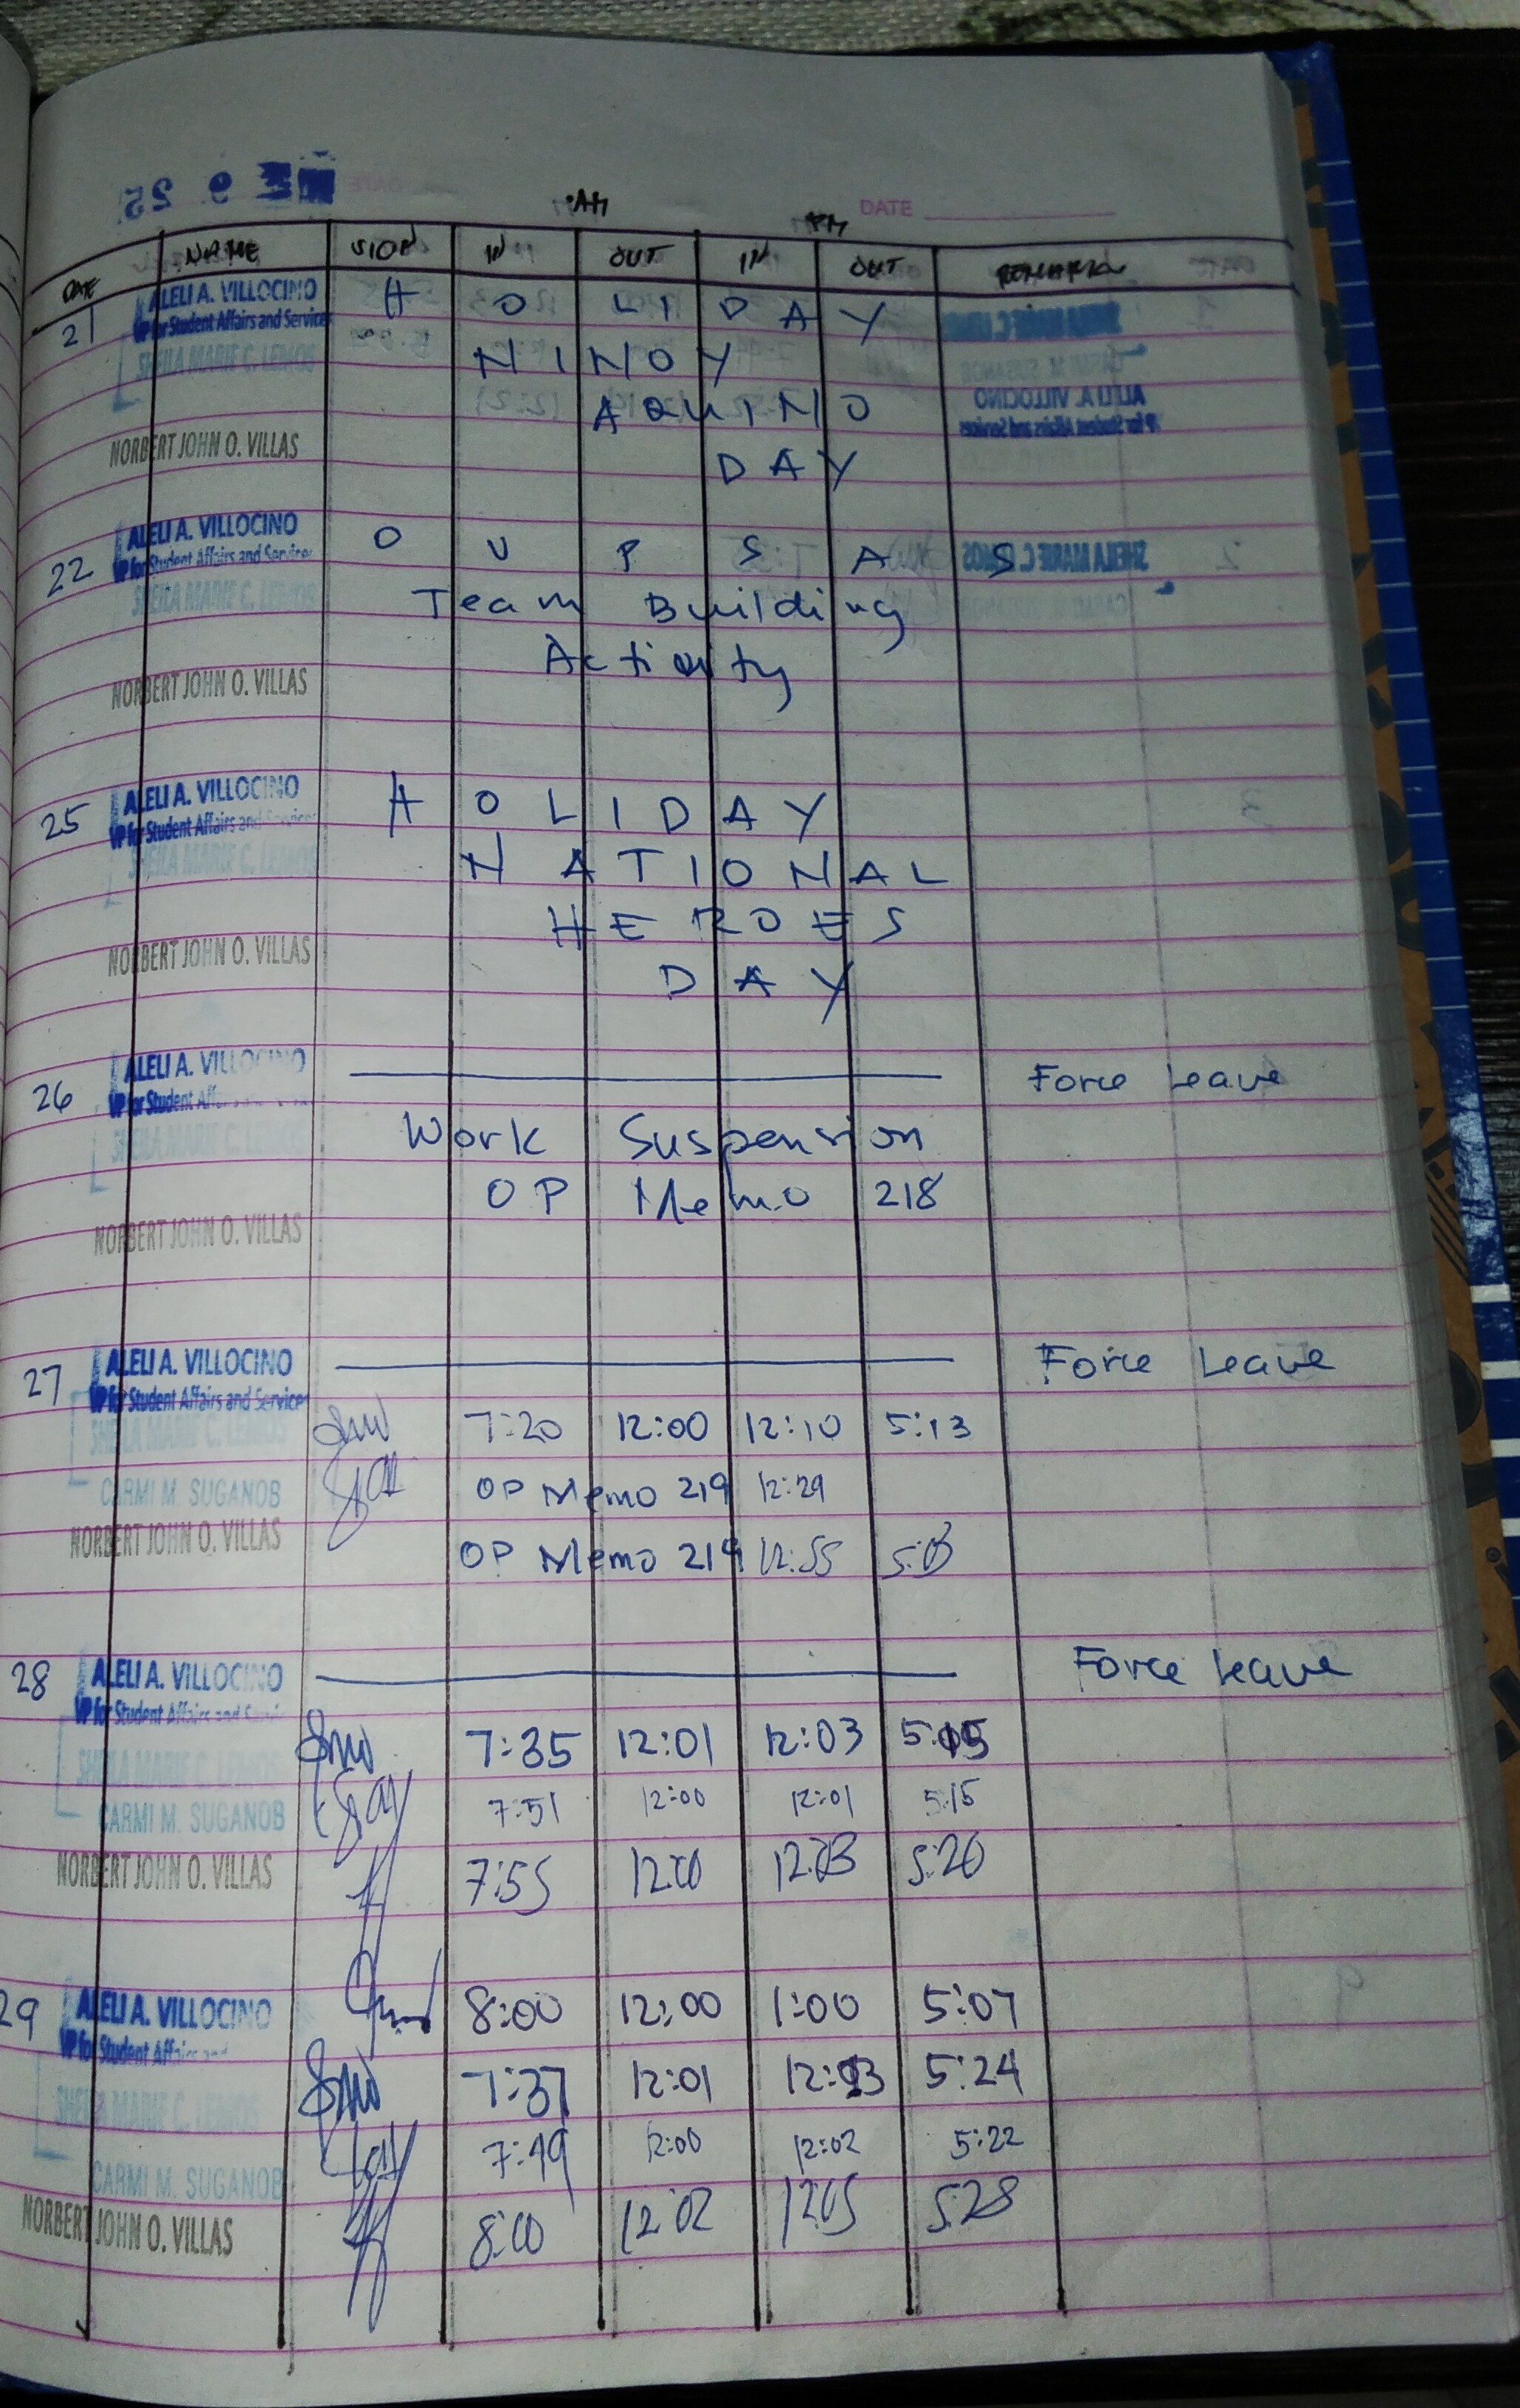 DATE
AM PM
DATE NAME SIGN IN OUT IN OUT REMARKS
21 ALELI A. VILLOCINO H O L I D A Y
VP for Student Affairs and Services
SHEILA MARIE C. LEMOS N I N O Y
A Q U I N O
NORBERT JOHN O. VILLAS D A Y
22 ALELI A. VILLOCINO O V P S A S
VP for Student Affairs and Services
SHEILA MARIE C. LEMOS Team Building
Activity
NORBERT JOHN O. VILLAS
25 ALELI A. VILLOCINO H O L I D A Y
VP for Student Affairs and Services
SHEILA MARIE C. LEMOS N A T I O N A L
H E R O E S
NORBERT JOHN O. VILLAS D A Y
26 ALELI A. VILLOCINO Force Leave
VP for Student
SHEILA MARIE C. LEMOS Work Suspension
OP Memo 218
NORBERT JOHN O. VILLAS
27 ALELI A. VILLOCINO Force Leave
VP for Student Affairs and Services
SHEILA MARIE C. LEMOS 7:20 12:00 12:10 5:13
CARMI M. SUGANOB OP Memo 219 12:29
NORBERT JOHN O. VILLAS OP Memo 219 12:55
28 ALELI A. VILLOCINO Force Leave
VP for Student Affairs and
SHEILA MARIE C. LEMOS 7:35 12:01 12:03 5:15
CARMI M. SUGANOB 7:51 12:00 12:01 5:15
NORBERT JOHN O. VILLAS 7:55 12:00 12:03 5:20
29 ALELI A. VILLOCINO 8:00 12:00 1:00 5:07
VP for Student Affairs and
SHEILA MARIE C. LEMOS 7:37 12:01 12:03 5:24
CARMI M. SUGANOB 7:49 12:00 12:02 5:22
NORBERT JOHN O. VILLAS 8:00 12:02 12:05 5:28